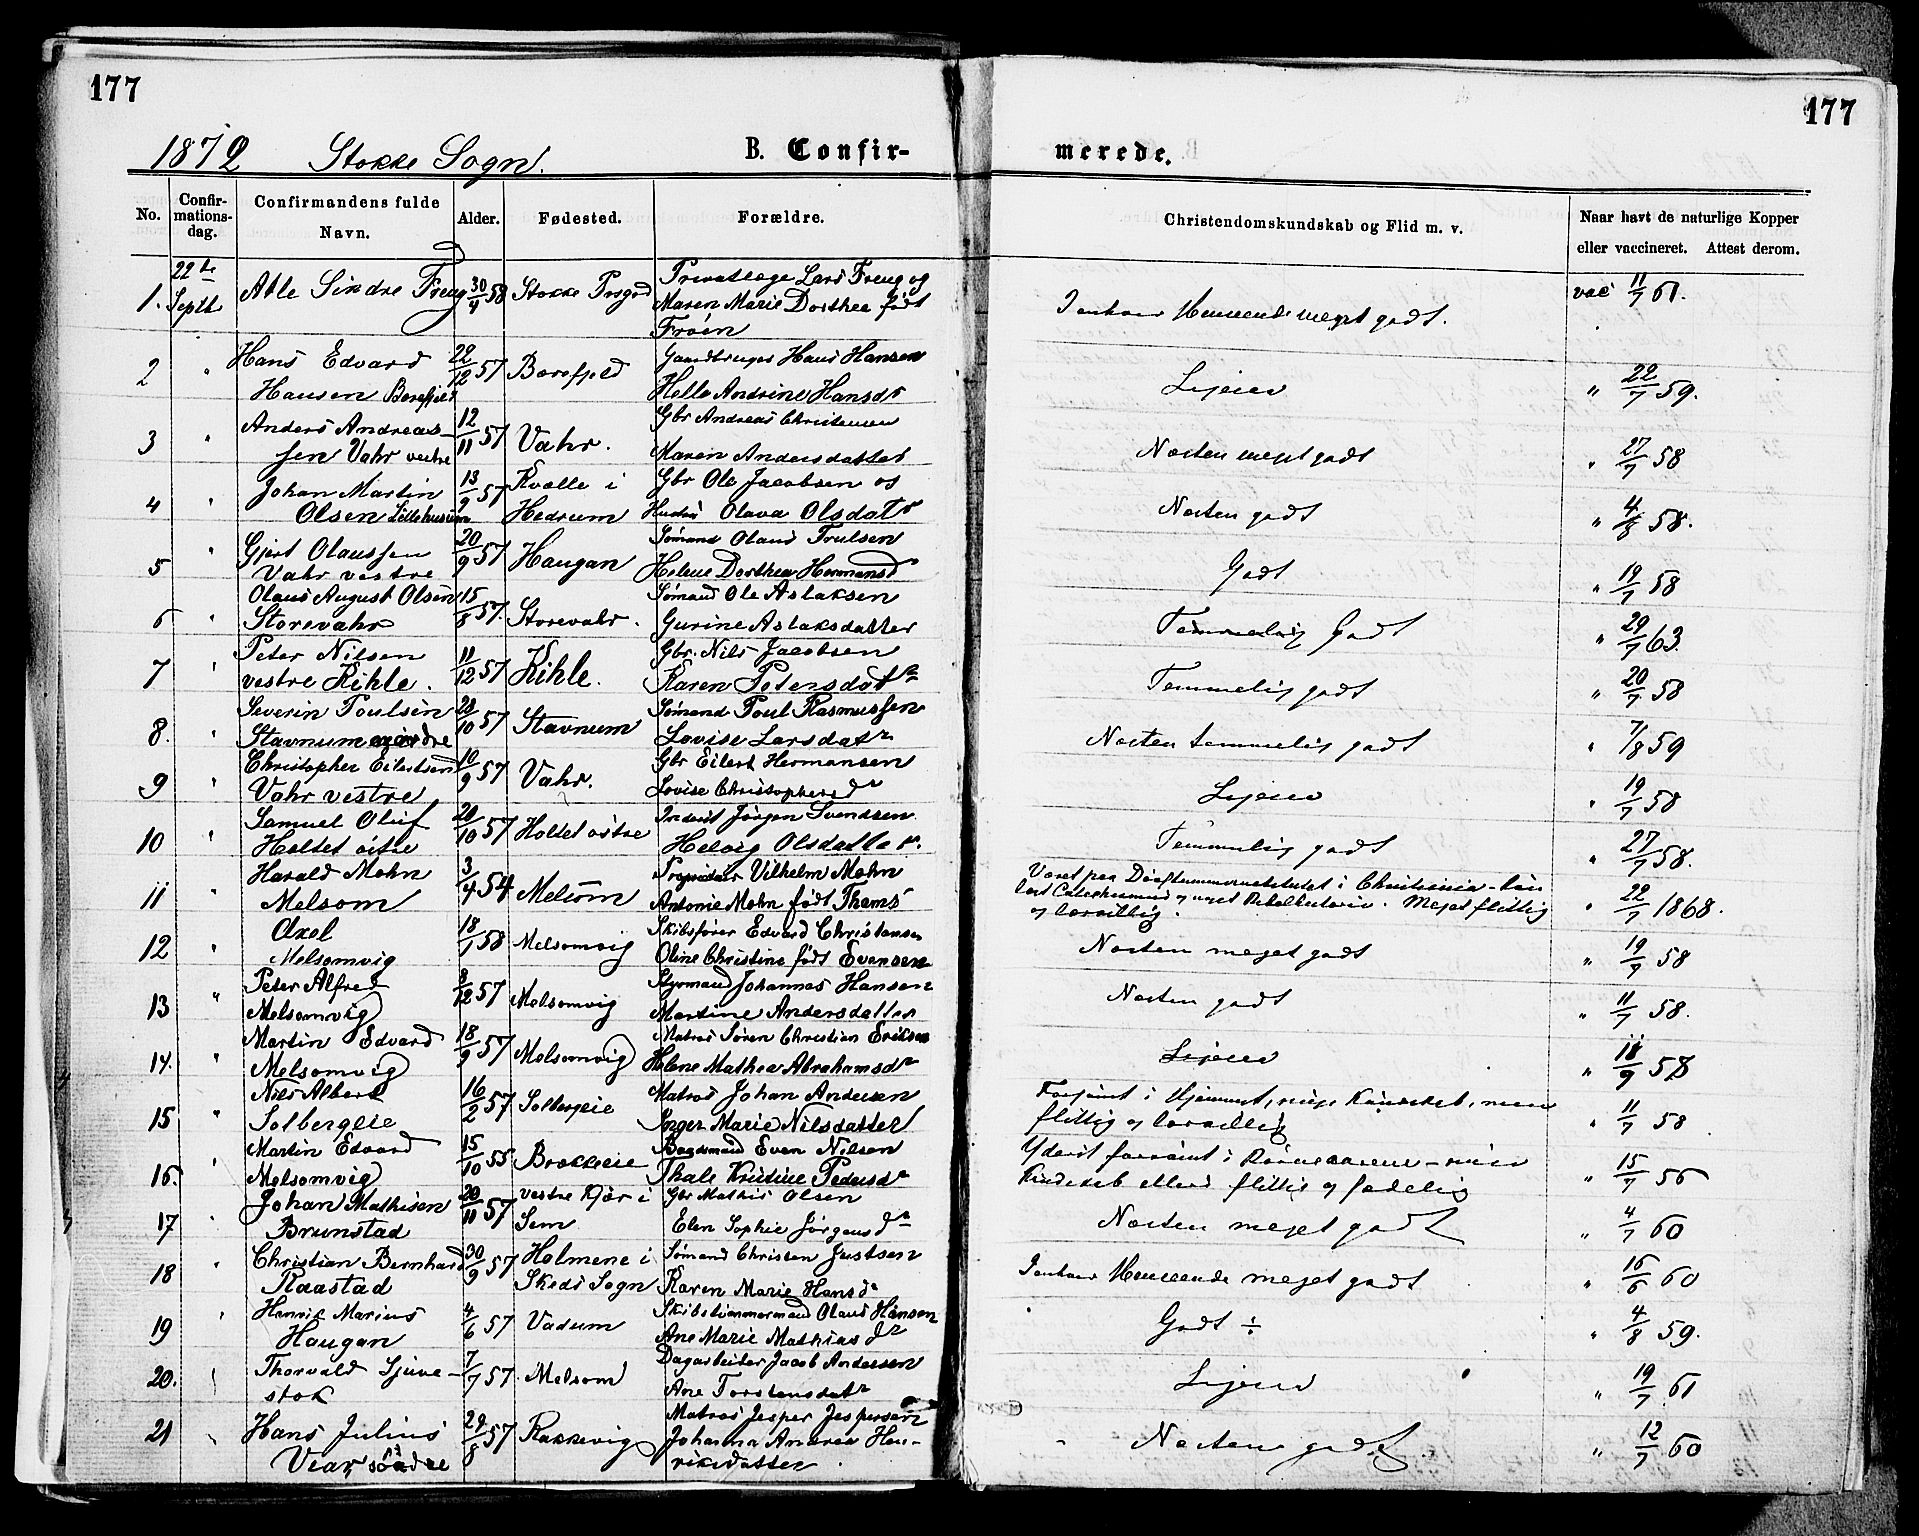 177
177
1872 Stokke Sogn.
B. Confir-
merede.
No.
Confir-
mations-
dag.
Confirmandens fulde
Navn.
Alder.
Fødested.
Forældre.
Christendomskundskab og Flid m. v.
Naar havt de naturlige Kopper
eller vaccineret. Attest derom.
22de Privatlæge Lars Freng og
1. Septbr Atle Sindre Freng 30/4 58 Stokke Prgrd Maren Marie Dorthea født
Frøen
Indhaver Udmærkende meget godt. vac 11/7 61.
Hans Edvard 22/12 57 Borefjeld Gaardbruger Hans Hansen
2 " Hansen Borefjeld Helle Andrine Hansdr
Ligesaa " 22/7 59.
Anders Andreas- 12/11 57 Vahr. Gbr Andreas Christensen
3 " sen Vahr vestre Maren Andersdatter
Næsten meget godt " 27/7 58
Johan Martin 13/9 57 Kvælle i Gbr Ole Jacobsen og
4 " Olsen Lillehusum Hedrum Hustru Olava Olsdatr
Næsten godt " 4/8 58.
5 " Gjert Olaussen 20/9 57 Haugan Sømand Olaus Trulsen
Vahr vestre Helene Dorthea Hermansdr
Godt " 19/7 58
Olaus August Olsen 15/8 57. Sømand Ole Aslaksen
6 " Storevahr Storevahr. Gurine Aslaksdatter
Temmelig Godt " 29/7 63.
Peter Nilsen 11/12 57 Gbr. Nils Jacobsen
7 " vestre Kihle. Kihle. Karen Petersdatr
Temmelig godt " 20/7 58
Severin Poulsen 28/10 57 Sømand Poul Rasmussen
8. " Stavnum nordre Stavnum Lovise Larsdatr
Næsten temmelig godt " 7/8 59
Christopher Eilertsen 10/9 57 Gbr Eilert Hermansen
9 " Vahr vestre Vahr. Lovise Christophersdr
Ligesaa " 19/7 58
Samuel Oluf 20/10 57 Holtet østre Inderst Jørgen Svendsen
10 Holtet østre Helvig Olsdatter.
Temmelig godt " 27/7 58.
Harald Mohn 3/4 54 Proprietær Vilhelm Mohn
11 Melsom Melsom Antonie Mohn født Thams
Været paa Døvstummeinstitutet i Christiania – kun
læst Catechismus og noget Bibelhistorie. Meget flittig
og lærvillig. " 22/7 1868.
Axel 18/1 58 Skibsfører Edvard Christansen
12 " Melsomvig Melsomvig Oline Christine født Evensen
Næsten meget godt " 19/7 58
Peter Alfred 8/12 57 Styrmand Johannes Hansen
13 " Melsomvig Melsomvig Martine Andersdatter
Næsten godt " 11/7 58.
Martin Edvard 18/9 57 Matros Søren Christian Eriksen
14. " Melsomvig Melsomvig Helene Mathea Abrahamsdr
Ligesaa " 18/9 58
Nils Albert 16/2 57 Solbergeie Matros Johan Andersen
15 " Solbergeie Inger Marie Nilsdatter
Forsømt i Hjemmet, ringe Kundskab, men
flittig og lærvillig " 11/7 58
Martin Edvard 15/10 55 Baadsmand Even Nilsen
16. " Melsomvig Brekkeeie Thale Kristine Pedersdr
Yderst forsømt i Børneaarene –
Kundskab ellers flittig og sædelig " 15/7 56
Johan Mathisen 20/11 57 vestre Kjær i Gbr Mathis Olsen
17 Brunstad Sem Elen Sophie Jørgensdr
Næsten meget godt " 4/7 60
Christian Bernhard 30/9 57 Holmene i Sømand Christen Justsen
18 " Raastad Skeds Sogn Karen Marie Hansdr
Indhaver Udmærkende meget godt " 16/6 60
Henrik Marius 4/6 57 Vadum Skibstømmermand Olaus Hansen
19 " Haugan Ane Marie Mathiasdr
Godt ÷ " 4/8 59.
Thorvald Sjuve- 7/7 57. Melsom Dagarbeider Jacob Andersen
20. stok Ane Torstensdatr
Ligesaa " 19/7 61
Hans Julius 29/8 57 Matros Jesper Jespersen
21 Vear søndre Rakkevig Johanna Andrea Hen-
riksdatter.
Næsten godt " 12/7 60